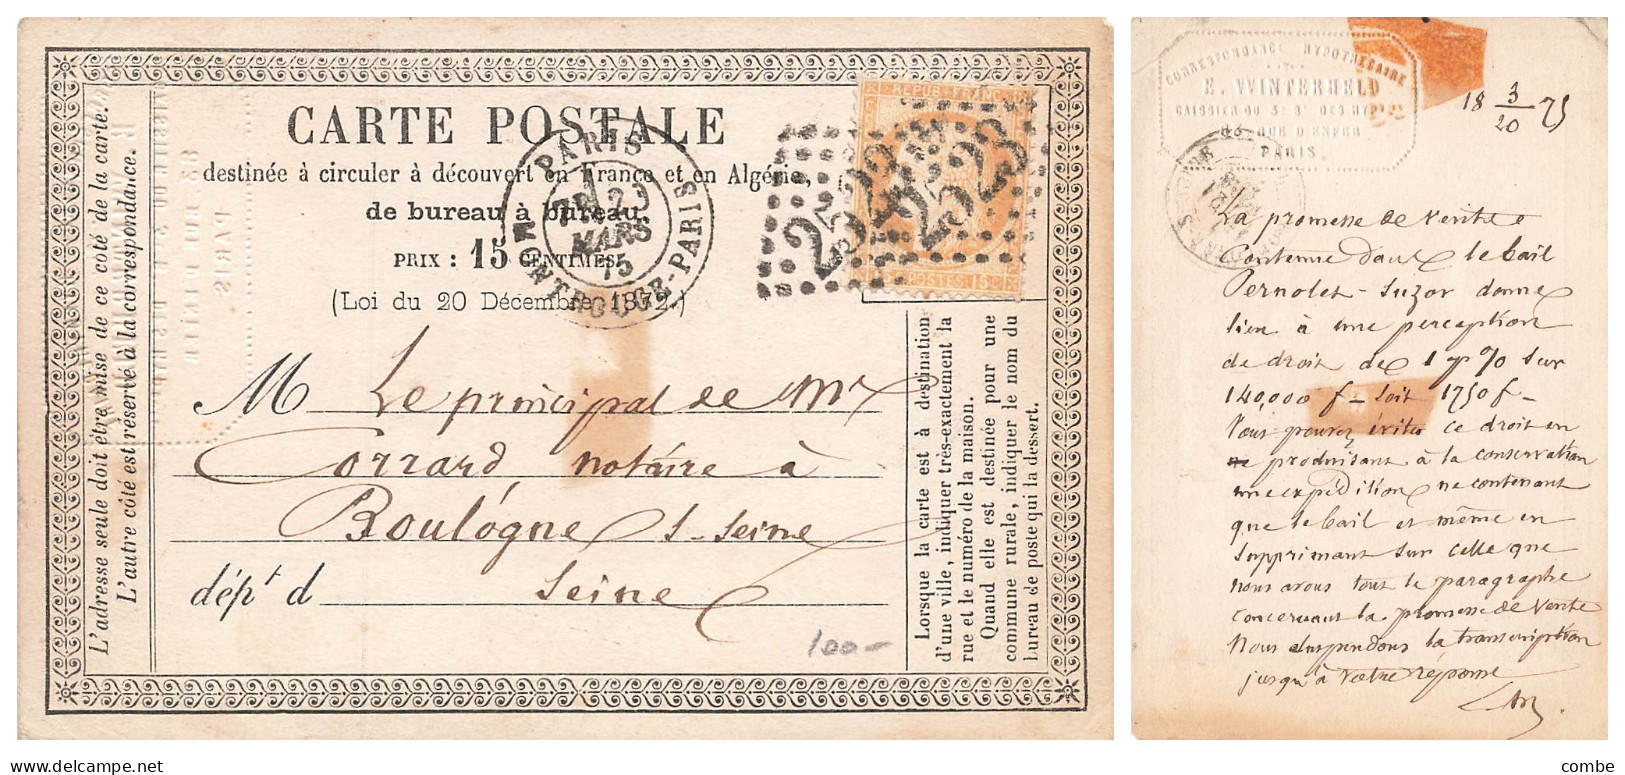 CARTE POSTALE
destinée à circuler à découvert en France et en Algérie,
de bureau à bureau.
PRIX : 15 CENTIMES.
(Loi du 20 Décembre 1872.)
M Le principal de Mr
Corrard notaire à
Boulogne s-seine
dépt d Seine
100-
L'adresse seule doit être mise de ce côté de la carte.
L'autre côté est réservé à la correspondance.
Lorsque la carte est à destination
d'une ville, indiquer très-exactement la
rue et le numéro de la maison.
Quand elle est destinée pour une
commune rurale, indiquer le nom du
bureau de poste qui la dessert.
PARIS
MARS
75
MONTROUGE-PARIS
REPUB FRANC
POSTES 15 C
CORRESPONDANCE HYPOTHECAIRE
E. WINTERHELD
CAISSIER DU 3e Bau DES HYP
RUE D'ENFER
PARIS.
18 3/20 75
La promesse de vente
Contenue dans le bail
Pernolet-Suzor donne
lien à une perception
de droit de 1 p % sur
140,000 f - soit 1750 f -
Vous pouvez éviter ce droit en
produisant à la conservation
une expédition ne contenant
que le bail et même en
supprimant sur celle que
nous avons tout le paragraphe
concernant la promesse de vente
Nous suspendons la transcription
jusqu'à votre réponse
delcampe.net
combe